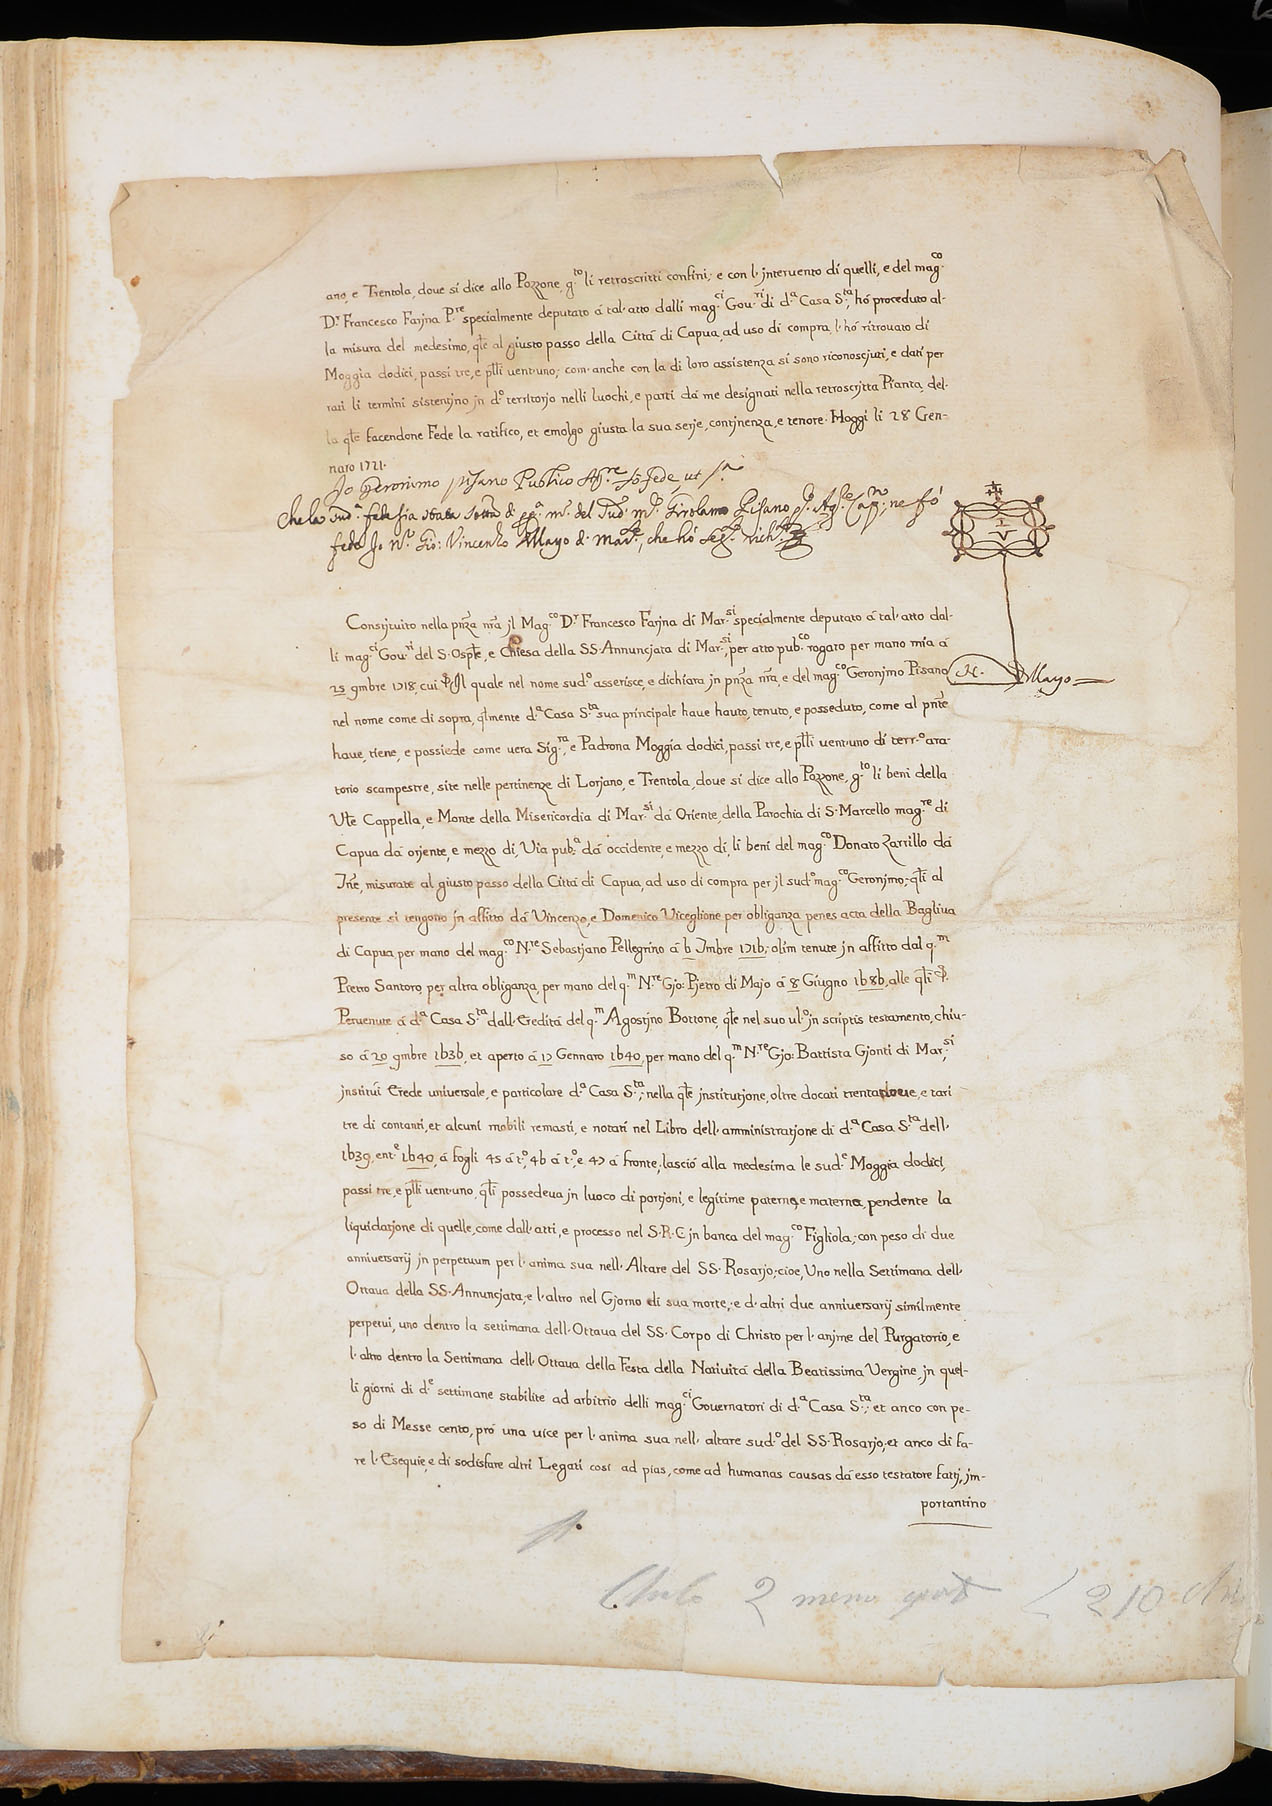 ano, e Trentola, doue si dice allo Pozzone, g.to li retroscritti confini; e con l' jnteruento di quelli, e del mag.co
D.r Francesco Farjna P.re specialmente deputato á tal' atto dalli mag.ci Gou.ri di d.a Casa S.ta, hó proceduto al-
la misura del medesimo, q̃le al giusto passo della Cittá di Capua, ad uso di compra, l' hó ritrouato di
Moggia dodici, passi tre, e p̃lli uent'uno; com' anche con la di loro assistenza si sono riconosciuti, e dati per
rati li termini sistentjno jn d.o territorjo nelli luochi, e parti dá me designati nella retroscrjtta Pianta, del-
la q̃le facendone Fede la ratifico, et emolgo giusta la sua serje, contjnenza, e tenore. Hoggi li 28 Gen-
naro 1721.
Jo Geronimo pisano Publico Ag.re fó fede ut s.a
che la sud.a fede sia stata
fede Jo N.r Gio: Vincenzo Mayo di Mar.si, che hó seg.
Mayo
Constjtuito nella pñza nr̃a jl Mag.co D.r Francesco Farjna di Mar.si specialmente deputato á tal' atto dal-
li mag.ci Gou.ri del S. Osp̃le, e Chiesa della SS. Annuncjata di Mar.si, per atto pub.co rogato per mano mia á
25 9mbre 1718, cui Il quale nel nome sud.o asserisce, e dichiara jn pñza nr̃a, e del mag.co Geronjmo Pisano
nel nome come di sopra, q̃lmente d.a Casa S.ta sua principale haue hauto, tenuto, e posseduto, come al pñte
haue, tiene, e possiede come uera Sig.ra, e Padrona Moggia dodici, passi tre, e p̃lli uent'uno di terr.o ara-
torio scampestre, site nelle pertinenze di Lorjano, e Trentola, doue si dice allo Pozzone, g.to li beni della
Vt̃e Cappella, e Monte della Misericordia di Mar.si dá Oriente, della Parochia di S. Marcello mag.re di
Capua dá orjente, e mezzo di, Via pub.a dá occidente, e mezzo di, li beni del mag.co Donato Zarrillo dá
Tr̃e, misurate al giusto passo della Cittá di Capua, ad uso di compra per jl sud.o mag.co Geronjmo; q̃li al
presente si tengono jn affitto dá Vincenzo, e Domenico Viceglione per obliganza penes acta della Bagliua
di Capua per mano del mag.co N.re Sebastjano Pellegrino á 6 Jmbre 1716; olim tenute jn affitto dal q.m
Pietro Santoro, per altra obliganza, per mano del q.m N.re Gjo: Pjetro di Majo á 8 Giugno 1686, alle q̃li
Peruenute á d.a Casa S.ta dall' Ereditá del q.m Agostjno Bottone, q̃le nel suo ul.o jn scriptis testamento, chiu-
so á 20 9mbre 1636, et aperto á 17 Gennaro 1640, per mano del q.m N.re Gjo: Battista Gjonti di Mar.si,
jnstituí Erede uniuersale, e particolare d.a Casa S.ta; nella q̃le jnstitutjone, oltre docati trentadoue, e tari
tre di contanti, et alcuni mobili remasti, e notati nel Libro dell' amministratjone di d.a Casa S.ta dell'
1639, ent.e 1640, á fogli 45 á t.o, 46 á t.o, e 47 á fronte; lasció alla medesima le sud.e Moggia dodici,
passi tre, e p̃lli uent'uno, q̃li possedeua jn luoco di portjoni, e legitime paterna, e materna, pendente la
liquidatjone di quelle, come dall' atti, e processo nel S.R.C. jn banca del mag.co Figliola; con peso di due
anniuersarij jn perpetuum per l' anima sua nell' Altare del SS. Rosarjo; cioe, Uno nella Settimana dell'
Ottaua della SS. Annuncjata, e l' altro nel Gjorno di sua morte; e d' altri due anniuersarij similmente
perpetui, uno dentro la settimana dell' Ottaua del SS. Corpo di Christo per l' anjme del Purgatorio, e
l' altro dentro la Settimana dell' Ottaua della Festa della Natiuitá della Beatissima Vergine, jn quel-
li giorni di d.e settimane stabilite ad arbitrio delli mag.ci Gouernatori di d.a Casa S.ta; et anco con pe-
so di Messe cento, pró una uice per l' anima sua nell' altare sud.o del SS. Rosarjo, et anco di fa-
re l' Esequie, e di sodisfare altri Legati cosí ad pias, come ad humanas causas dá esso testatore fatti, jm-
portantino
2 meno
210